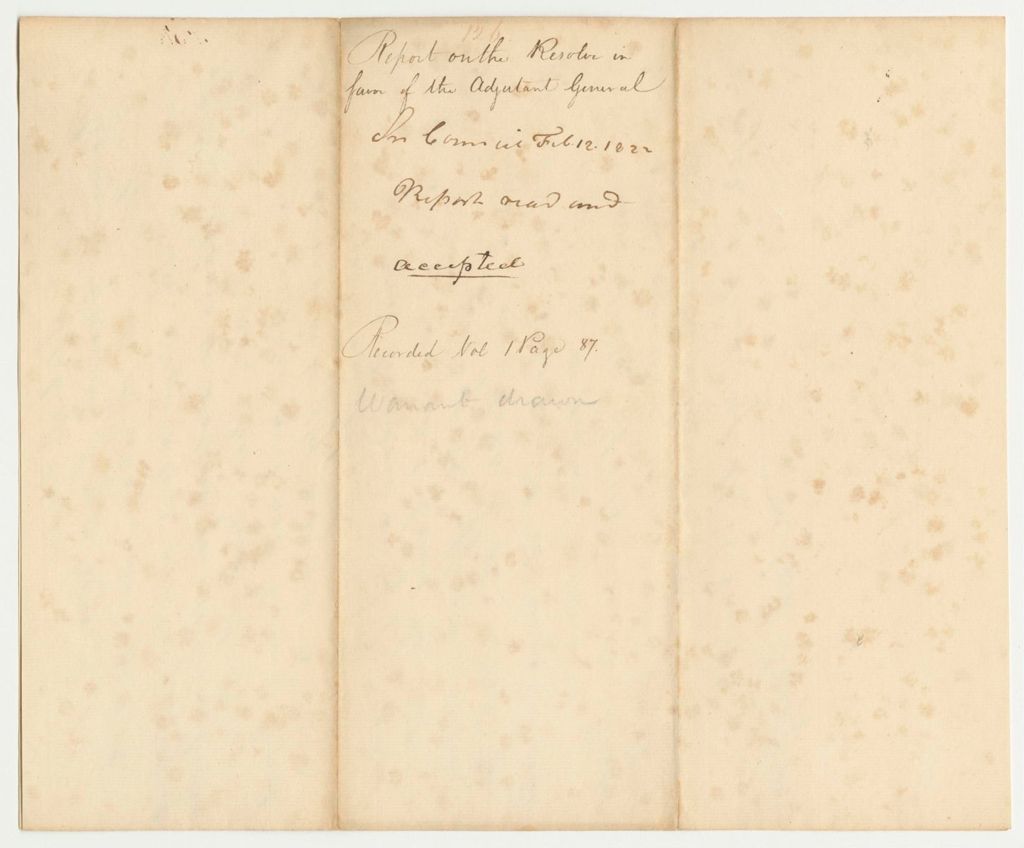 Report on the Resolve in
favor of the Adjutant General
In Council Feb. 12. 1822
Report read and
accepted
Recorded Vol 1 Page 87.
Warrant drawn